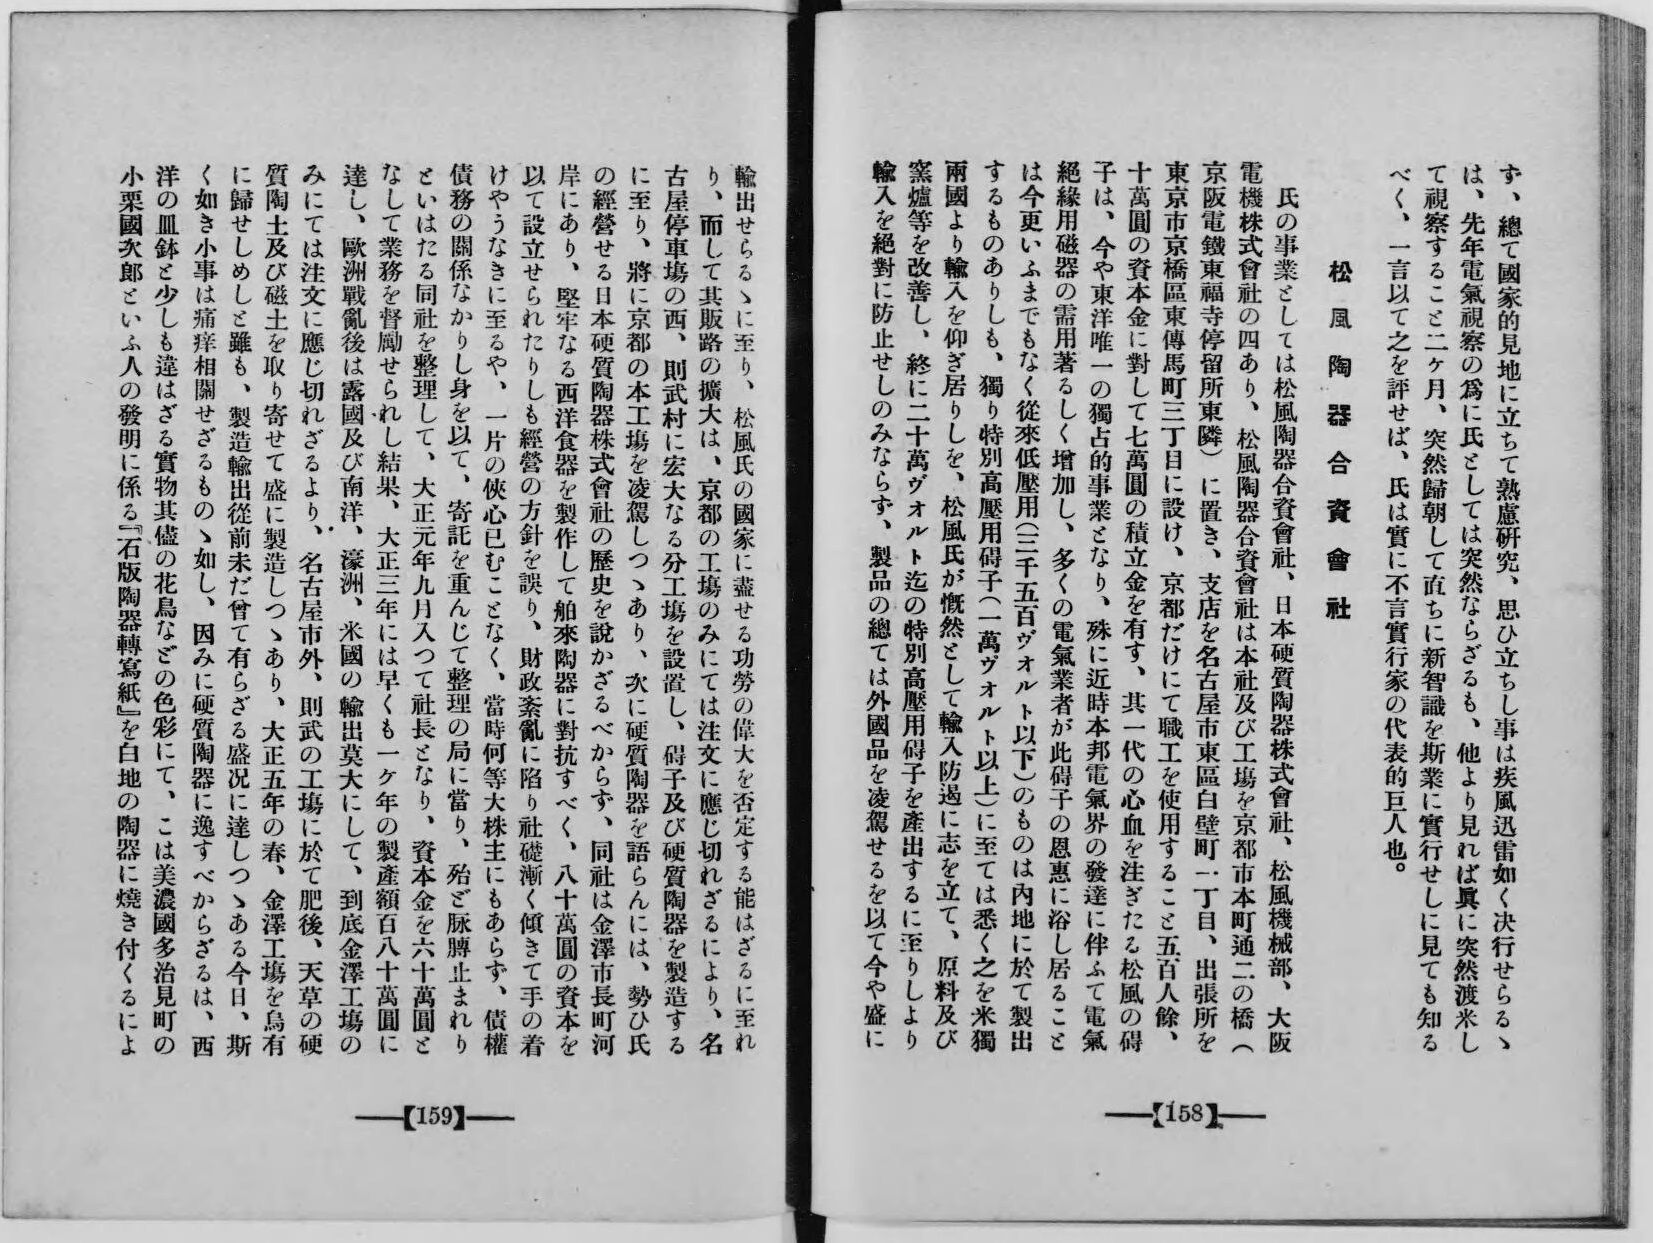 ず、總て國家的見地に立ちて熟慮硏究、思ひ立ちし事は疾風迅雷如く決行せらるゝ
は、先年電氣視察の爲に氏としては突然ならざるも、他より見れば眞に突然渡米し
て視察すること二ヶ月、突然歸朝して直ちに新智識を斯業に實行せしに見ても知る
べく、一言以て之を評せば、氏は實に不言實行家の代表的巨人也。
松風陶器合資會社
氏の事業としては松風陶器合資會社、日本硬質陶器株式會社、松風機械部、大阪
電機株式會社の四あり、松風陶器合資會社は本社及び工塲を京都市本町通二の橋(
京阪電鐵東福寺停留所東隣)に置き、支店を名古屋市東區白壁町一丁目、出張所を
東京市京橋區東傳馬町三丁目に設け、京都だけにて職工を使用すること五百人餘、
十萬圓の資本金に對して七萬圓の積立金を有す、其一代の心血を注ぎたる松風の碍
子は、今や東洋唯一の獨占的事業となり、殊に近時本邦電氣界の發達に伴ふて電氣
絕緣用磁器の需用著るしく增加し、多くの電氣業者が此碍子の恩惠に浴し居ること
は今更いふまでもなく從來低壓用(三千五百ヴォルト以下)のものは內地に於て製出
するものありしも、獨り特別高壓用碍子(一萬ヴォルト以上)に至ては悉く之を米獨
兩國より輸入を仰ぎ居りしを、松風氏が慨然として輸入防遏に志を立て、原料及び
窯爐等を改善し、終に二十萬ヴォルト迄の特別高壓用碍子を產出するに至りしより
輸入を絕對に防止せしのみならず、製品の總ては外國品を凌駕せるを以て今や盛に
【158】
輸出せらるゝに至り、松風氏の國家に盡せる功勞の偉大を否定する能はざるに至れ
り、而して其販路の擴大は、京都の工塲のみにては注文に應じ切れざるにより、名
古屋停車塲の西、則武村に宏大なる分工塲を設置し、碍子及び硬質陶器を製造する
に至り、將に京都の本工塲を凌駕しつゝあり、次に硬質陶器を語らんには、勢ひ氏
の經營せる日本硬質陶器株式會社の歷史を說かざるべからず、同社は金澤市長町河
岸にあり、堅牢なる西洋食器を製作して舶來陶器に對抗すべく、八十萬圓の資本を
以て設立せられたりしも經營の方針を誤り、財政紊亂に陷り社礎漸く傾きて手の着
けやうなきに至るや、一片の俠心已むことなく、當時何等大株主にもあらず、債權
債務の關係なかりし身を以て、寄託を重んじて整理の局に當り、殆ど脉膊止まれり
といはたる同社を整理して、大正元年九月入つて社長となり、資本金を六十萬圓と
なして業務を督勵せられし結果、大正三年には早くも一ヶ年の製產額百八十萬圓に
達し、歐洲戰亂後は露國及び南洋、濠洲、米國の輸出莫大にして、到底金澤工塲の
みにては注文に應じ切れざるより、名古屋市外、則武の工塲に於て肥後、天草の硬
質陶土及び磁土を取り寄せて盛に製造しつゝあり、大正五年の春、金澤工塲を烏有
に歸せしめしと雖も、製造輸出從前未だ曾て有らざる盛况に達しつゝある今日、斯
く如き小事は痛痒相關せざるものゝ如し、因みに硬質陶器に逸すべからざるは、西
洋の皿鉢と少しも違はざる實物其儘の花鳥などの色彩にて、こは美濃國多治見町の
小栗國次郎といふ人の發明に係る『石版陶器轉寫紙』を白地の陶器に燒き付くるによ
【159】